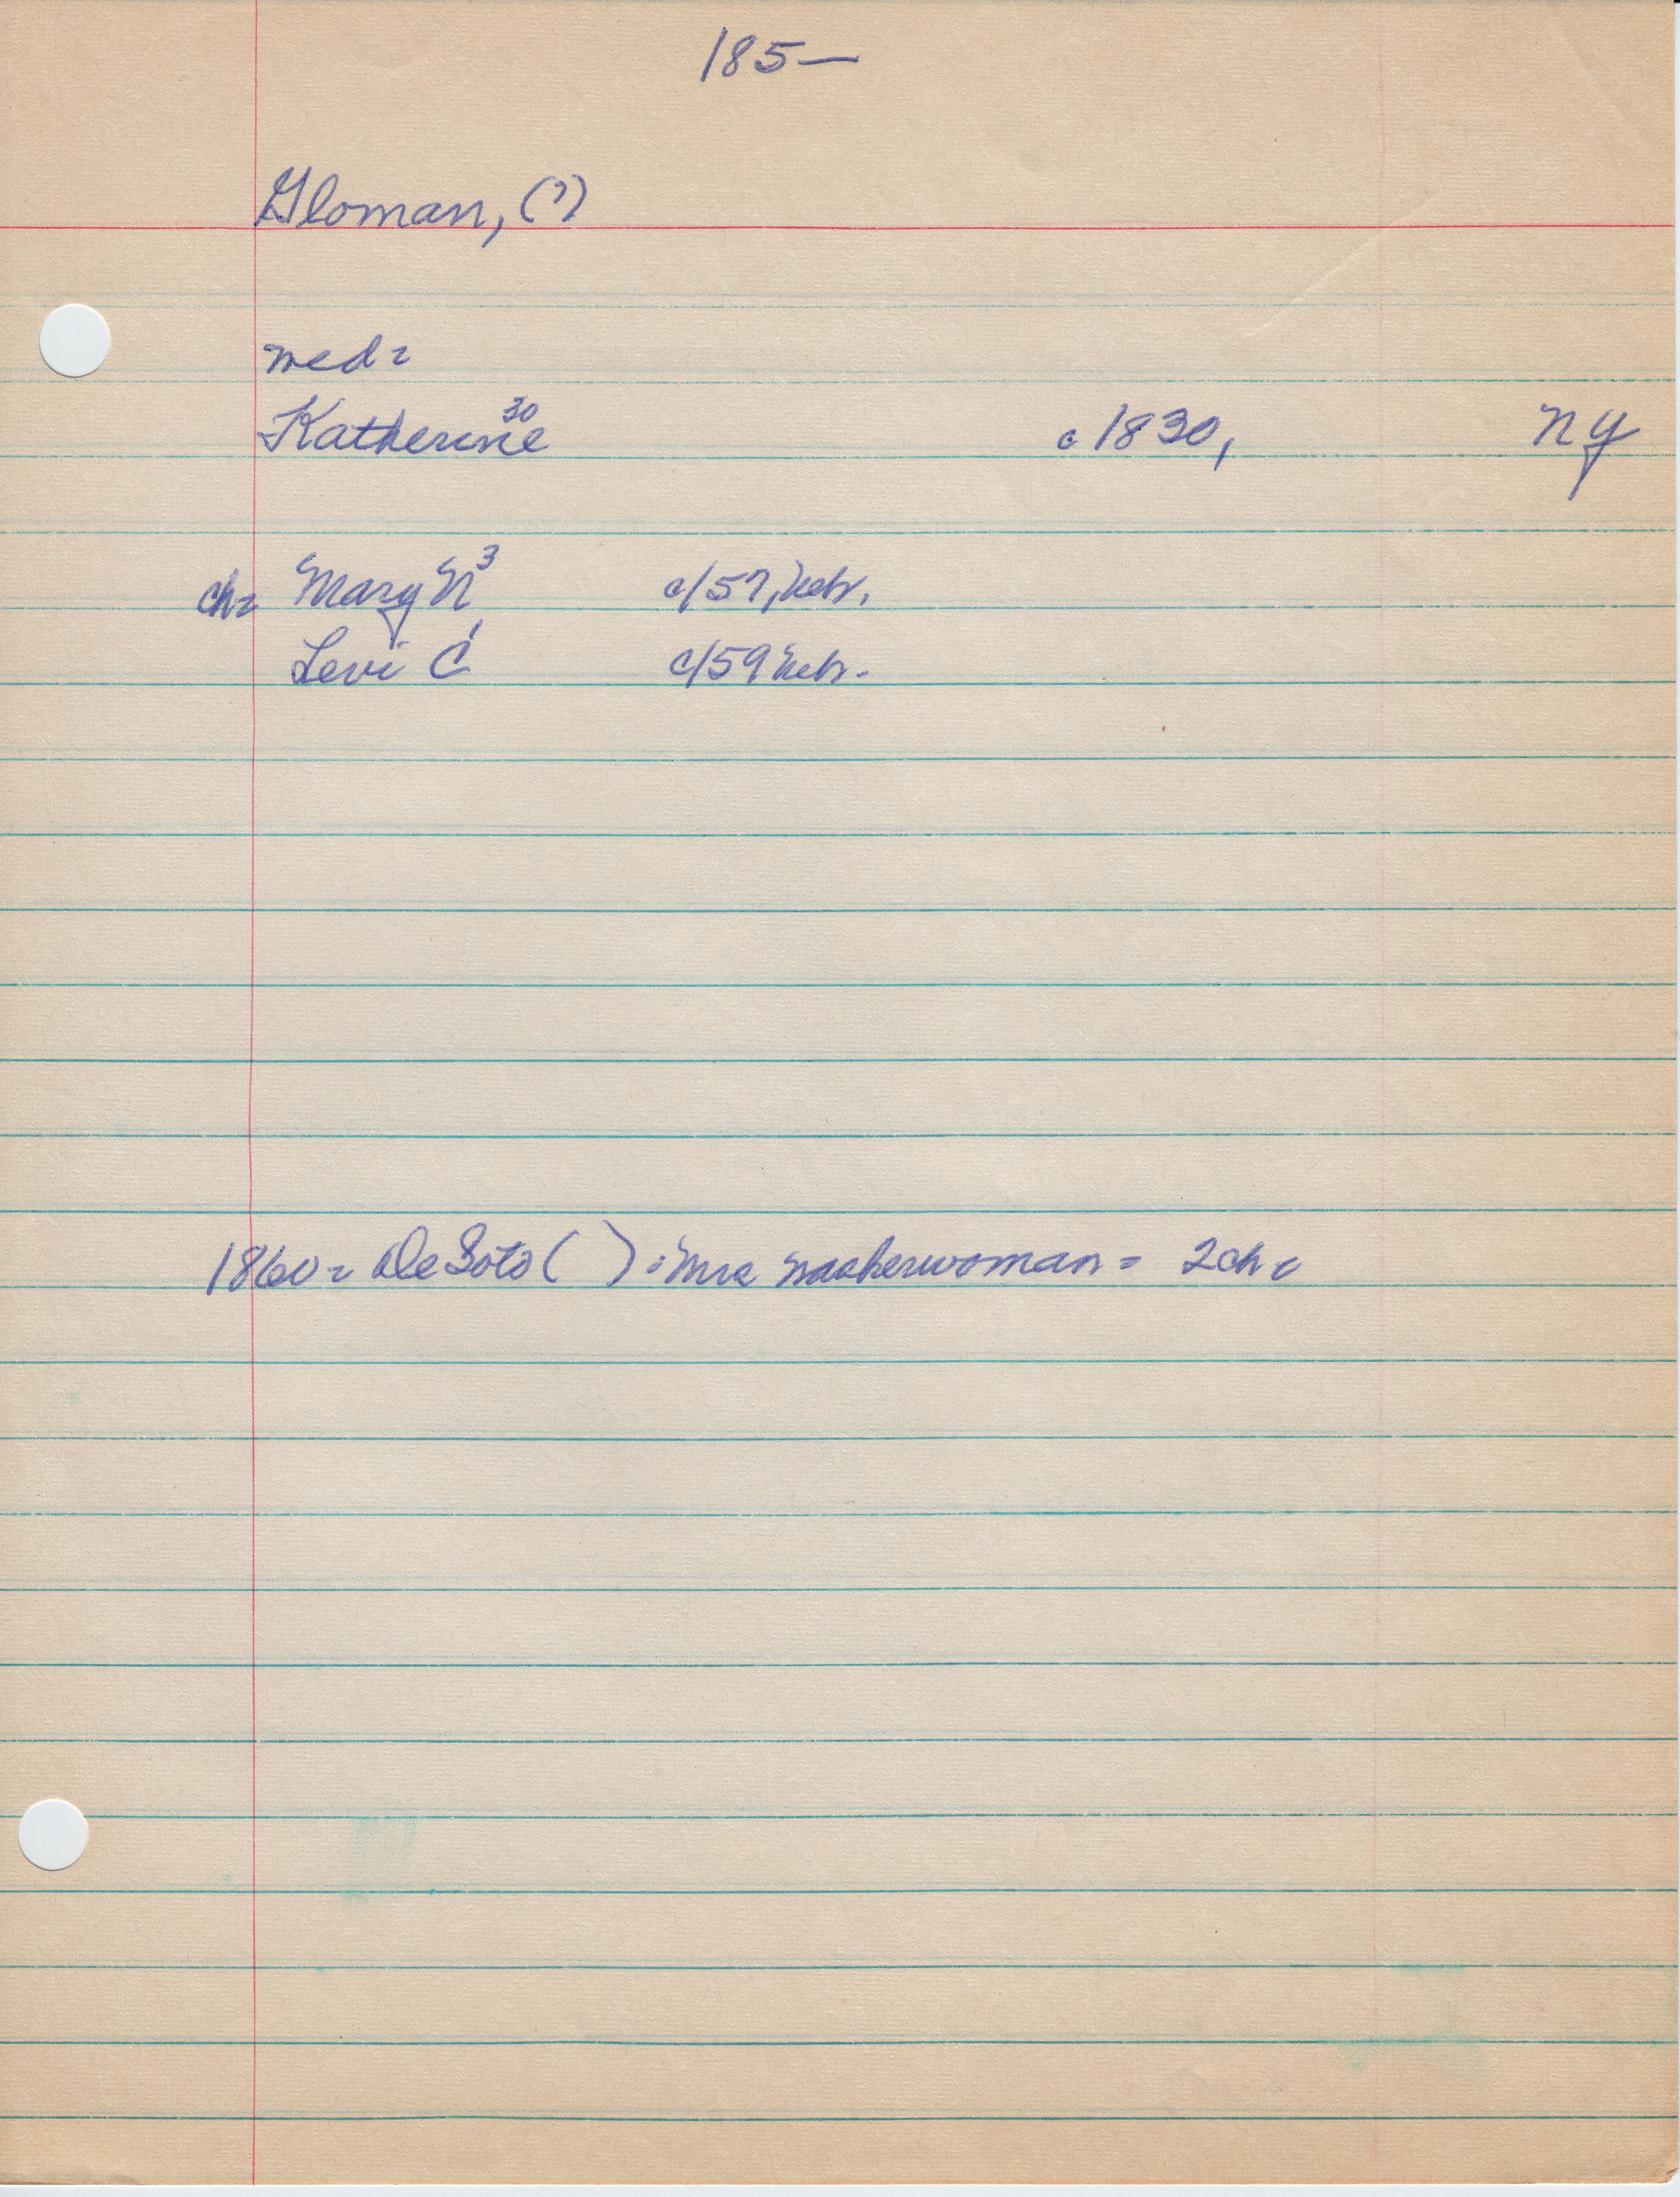 185—
Gloman, (?)
med=
Katherine 30 c 1830, NY
ch= Mary N 3 c/57, Nebr.
Levi C 1 c/59 Nebr.
1860= De Soto ( ): Mrs washerwoman = 2ch=